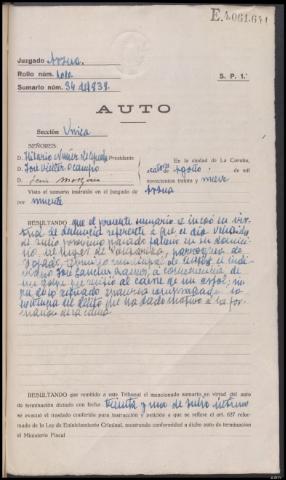 E.4.061.641
Juzgado Arzua.
Rollo núm.
Sumario núm. 34 de 1939.
S. P. 1.ª
AUTO
Sección Unica
SEÑORES
D. Hilario Núñez de Cepeda Presidente
D. José Víctor Ocampo
D. Jesús
En la ciudad de La Coruña,
Agosto de mil
novecientos treinta y nueve
Visto el sumario instruido en el Juzgado de Arzua
por muerte
RESULTANDO que el presente sumario se incoó en vir-
tud de denuncia referente a que el día veintidós
de julio próximo pasado falleció en su domicilio
del lugar de parroquia de
término municipal de el indi-
viduo José Sánchez a consecuencia de
un golpe que sufrió al caerse de un arbol; no
la
existencia del delito que ha dado motivo a la for-
mación de la causa.
RESULTANDO que remitido a este Tribunal el mencionado sumario en virtud del auto
de terminación dictado con fecha treinta y uno de julio último
se evacuó el traslado conferido para instrucción y petición a que se refiere el art. 627 refor-
mado de la Ley de Enjuiciamiento Criminal, mostrando conformidad a dicho auto de terminación
el Ministerio Fiscal